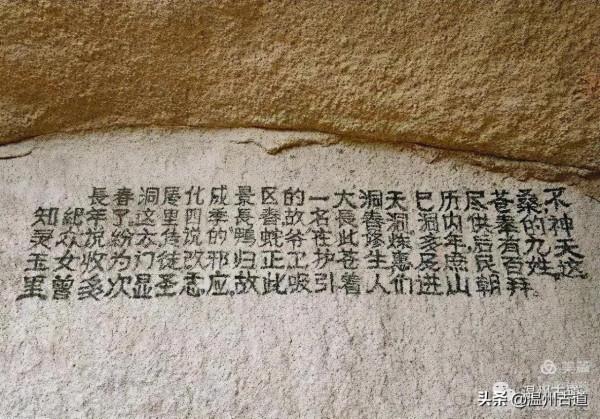 不神天这
桑的九姓
苍奉有百拜
尽供后民朝
历内年庶山
已洞多及进
天洞炼惠们
洞香修生人
大此苍着
一名在护引
的故爷卫吸
区香蛇正此
景長鸭归故
成季的邪应
化四说改
屡里传徒圣
洞这太门显
春了纷为次
長年说收多
众女曾
知灵玉里
美篇
头条 @温州古道